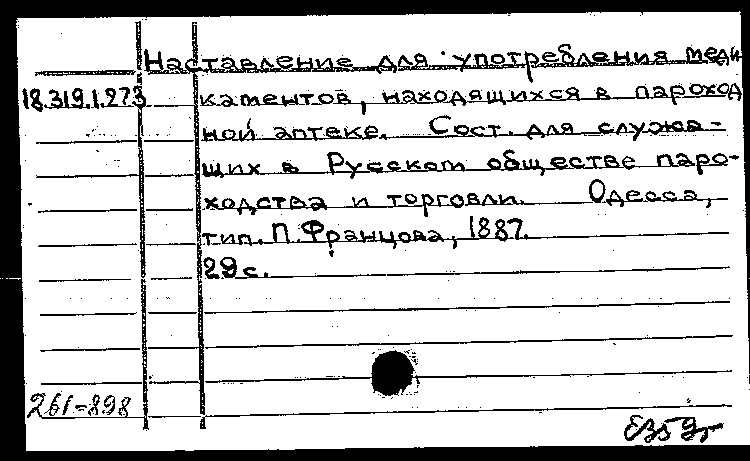 Наставление для употребления меди
18.319.1.273 каментов, находящихся в пароход
ной аптеке. Сост. для служа-
щих в Русском обществе паро-
ходства и торговли. Одесса,
тип. П. Францова, 1887.
29 с.
261-898